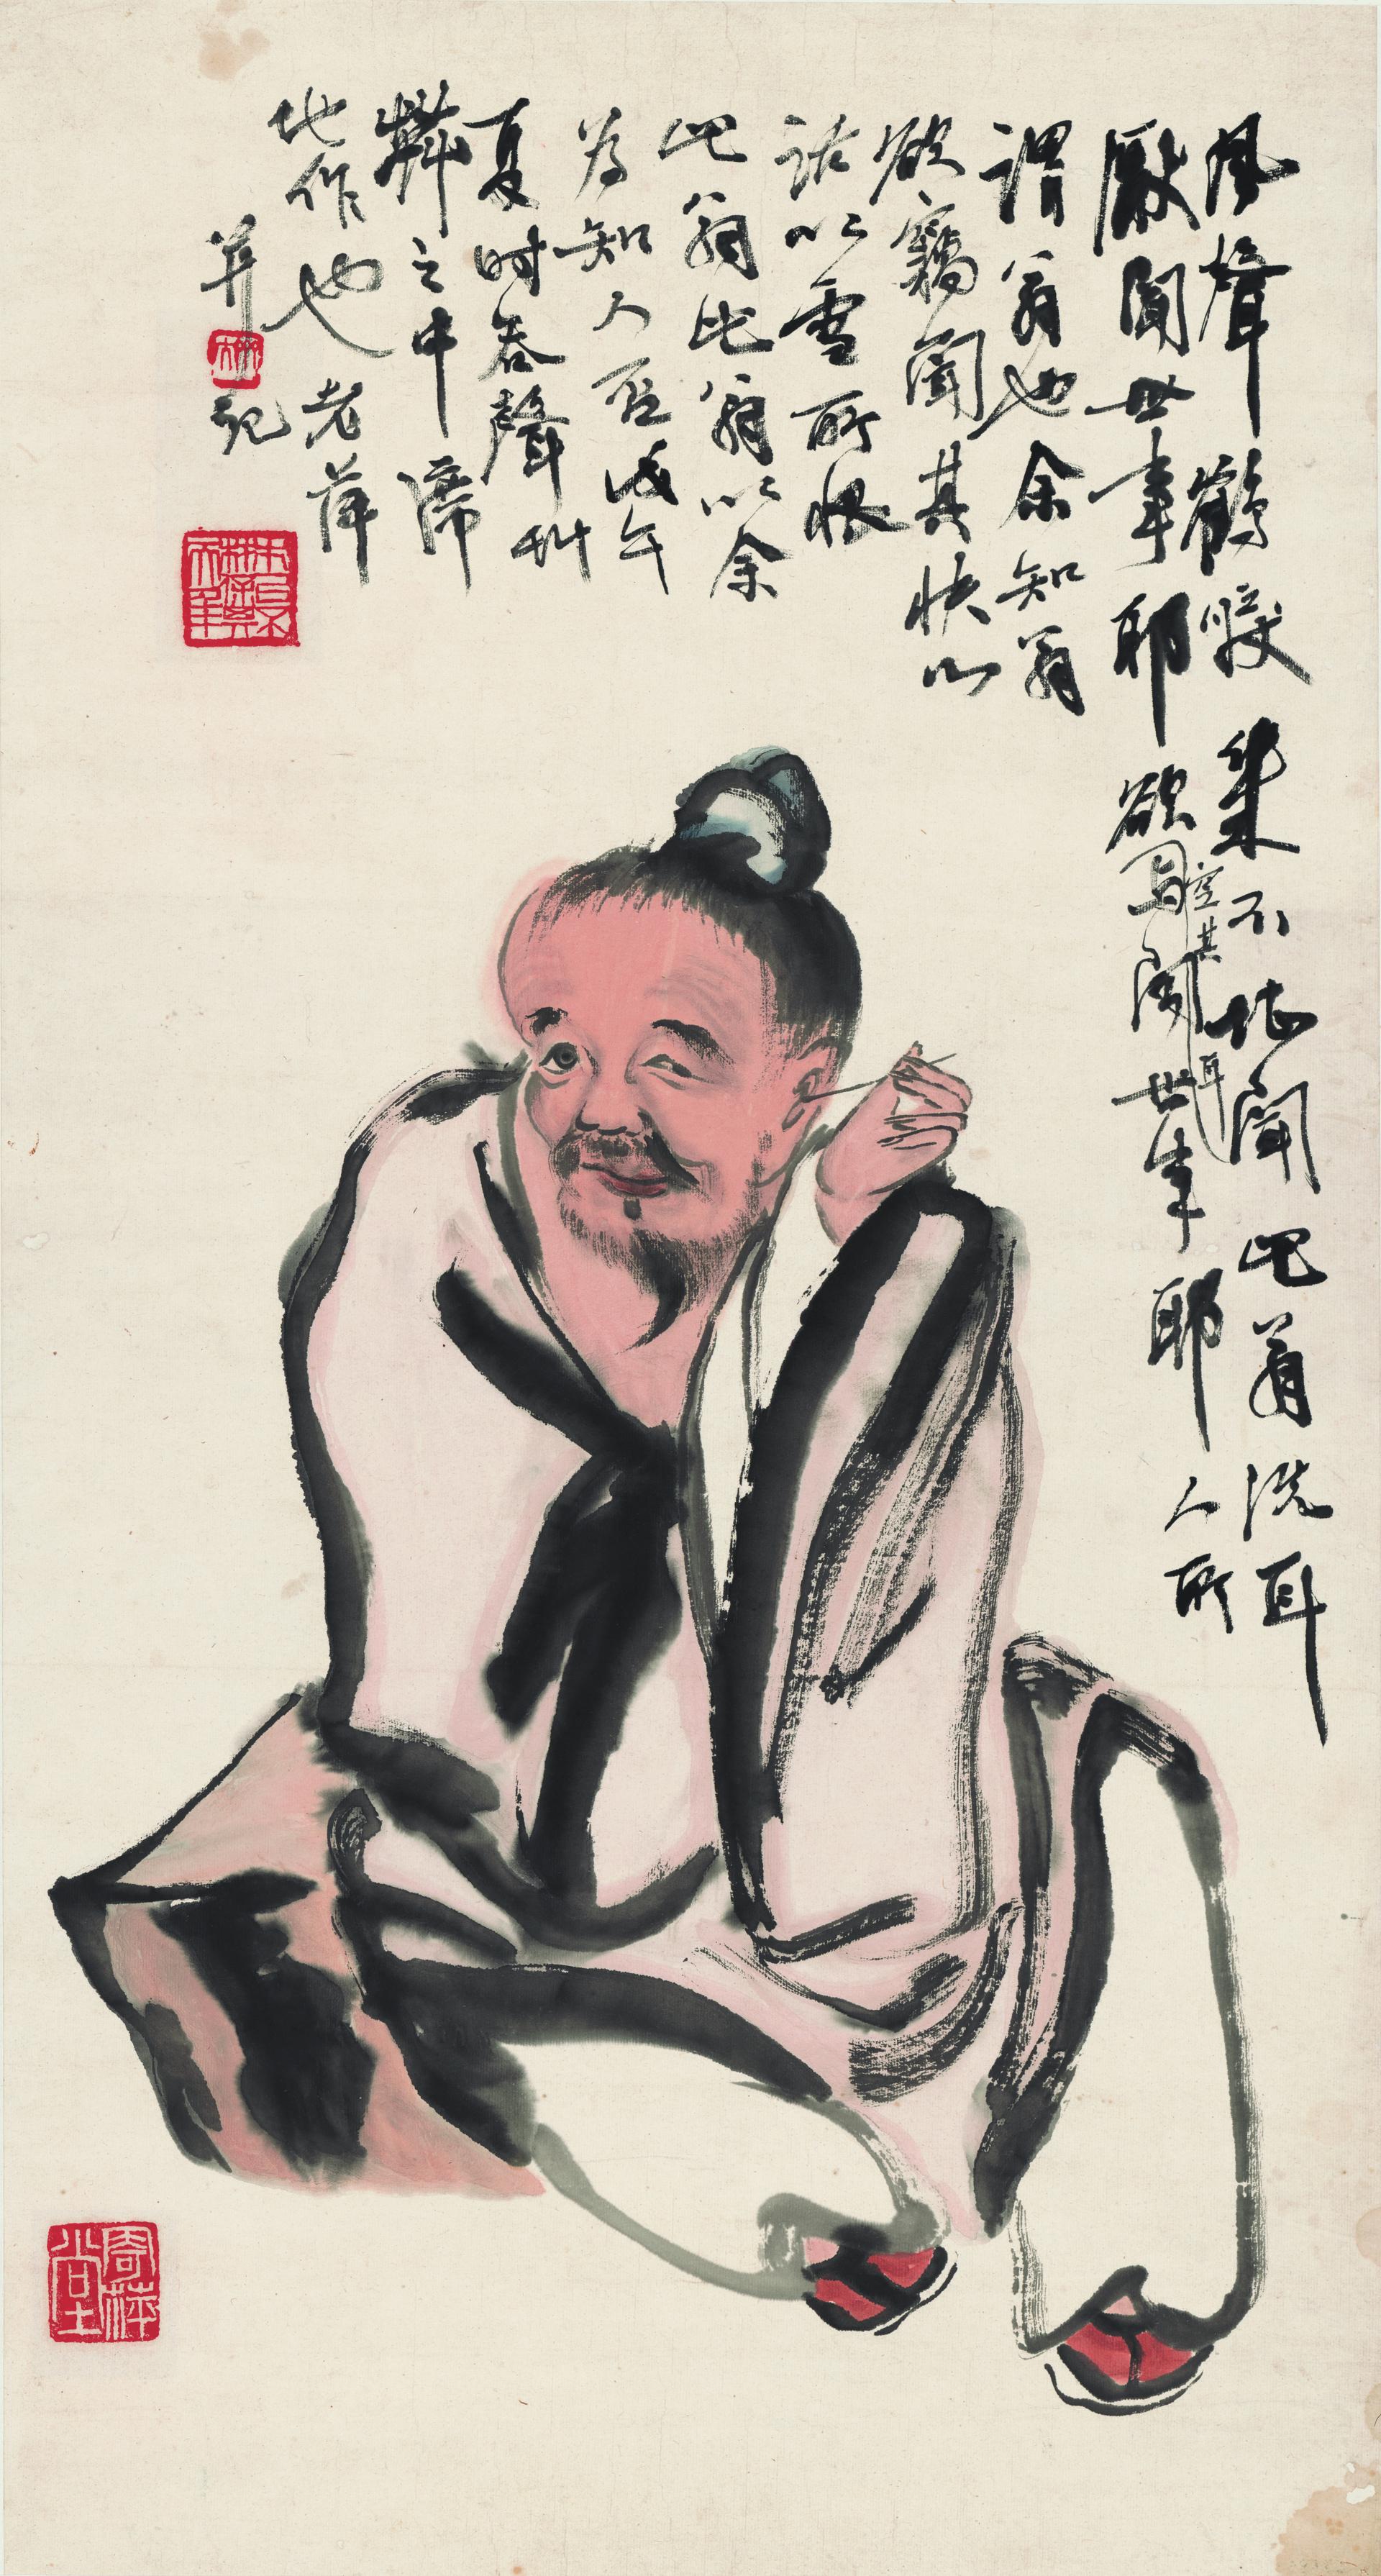 風聲鶴唳衆不堪聞此翁洗耳
厭聞世事耶欲空其耳聞世事耶人所
謂翁也余知翁
欲竊聞其快心
話以雪所恨
此翁比翁以余
為知人否戊午
夏時吞聲艸
莽之中席
地作也老萍
并記
寄萍堂